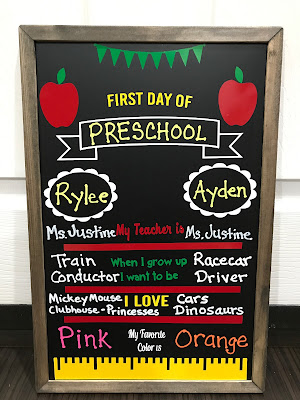 FIRST DAY OF
PRESCHOOL
Rylee Ayden
Ms. Justine My Teacher is Ms. Justine
Train When I grow up Racecar
Conductor I want to be Driver
Mickey Mouse I LOVE Cars
Clubhouse - Princesses Dinosaurs
Pink My Favorite Color is Orange